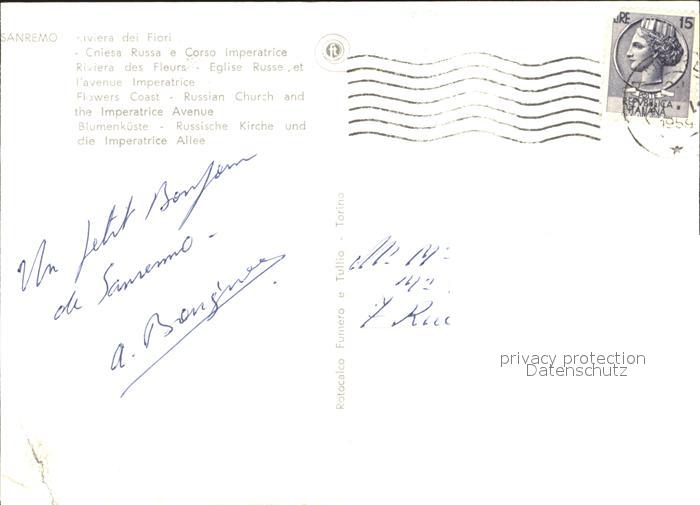 SANREMO Riviera dei Fiori
- Chiesa Russa e Corso Imperatrice
Riviera des Fleurs - Eglise Russe et
l'avenue Imperatrice
Flowers Coast - Russian Church and
the Imperatrice Avenue
Blumenküste - Russische Kirche und
die Imperatrice Allee
ft
LIRE 15
POSTE
REPVBBLICA
ITALIANA
1959
Un petit Bonjour
de Sanremo -
a.
Rotocalco Fumero e Tullio - Torino
7 Rue
privacy protection
Datenschutz